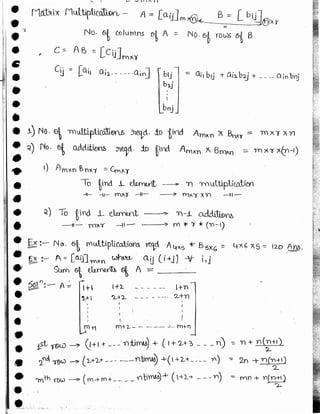 Matrix Multiplication - A = [aij]m×n B = [bij]n×r
No. of columns of A = No. of rows of B
C = AB = [Cij]m×r
Cij = [ai1 ai2 ------ ain] [bij b2j ⋮ bnj] = ai1 bij + ai2 b2j + ---- ain bnj
1) No. of multiplications reqd. to find Am×n × Bn×r = m×r×n
2) No. of additions reqd. to find Am×n × Bm×n = m×r×(n-1)
1) Am×n Bn×r = Cm×r
To find 1 element → n multiplication
-"- -"- m×r -"- → m×r×n -"-
2) To find 1 element → n-1 additions
-"- m×r -"- → m * r * (n-1)
Ex:- No. of multiplications reqd A4×5 * B5×6 = 4×6×5 = 120 Ans.
Ex:- A = [aij]m×n where aij (i+j) ∀ i,j
Sum of elements of A =
Sol":- A = [1+1 1+2 ------ 1+n
2+1 2+2 ------ 2+n
m+1 m+2 ------ m+n]
1st row → (1+1+---n times) + (1+2+3---n) = n + n(n+1)/2
2nd row → (2+2+-----n times) + (1+2+---- n) = 2n + n(n+1)/2
mth row → (m+m+---- n times) + (1+2+--- n) = mn + n(n+1)/2